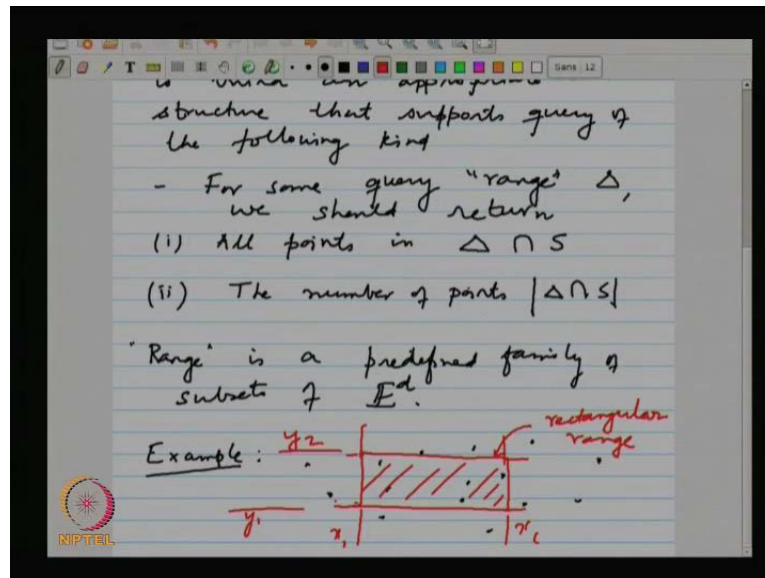 Sans 12
structure that supports query of
the following kind
- For some query "range" Δ,
we should return
(i) All points in Δ ∩ S
(ii) The number of points |Δ∩S|
"Range" is a predefined family of
subsets of E^d.
rectangular
range
Example : y2
y1 x1
NPTEL